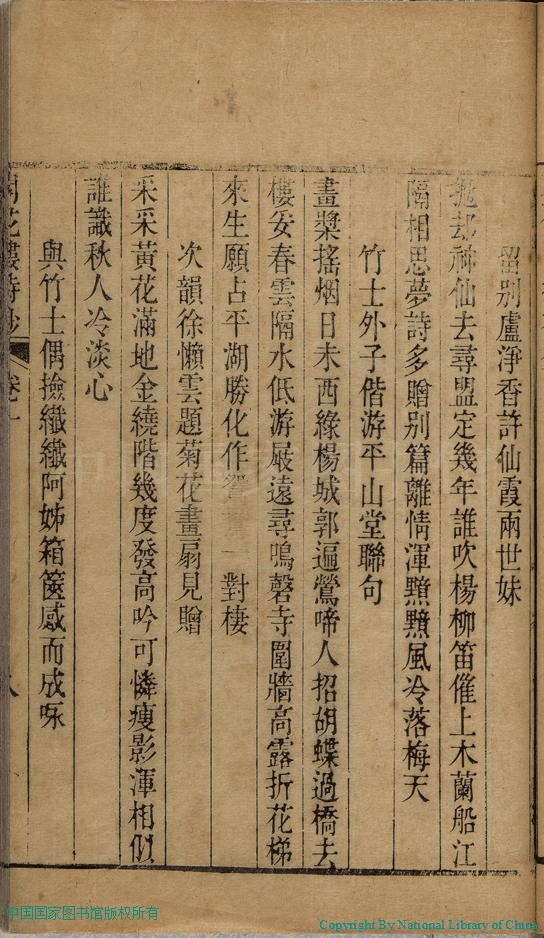 留別盧淨香許仙霞兩世妹
拋却神仙去尋盟定幾年誰吹楊柳笛催上木蘭船江
隔相思夢詩多贈別篇離情渾黯黯風冷落梅天
竹士外子偕游平山堂聯句
畫槳搖烟日未西綠楊城郭遍鶯啼人招胡蝶過橋去
樓安春雲隔水低游屐遠尋鳴磬寺圍牆高露折花梯
來生願占平湖勝化作鴛 對棲
次韻徐懶雲題菊花畫扇見贈
采采黃花滿地金繞階幾度發高吟可憐瘦影渾相似
誰識秋人冷淡心
與竹士偶撿纖纖阿姊箱篋感而成咏
花樓詩抄 卷一 八
中国国家图书馆版权所有
Copyright By National Library of China